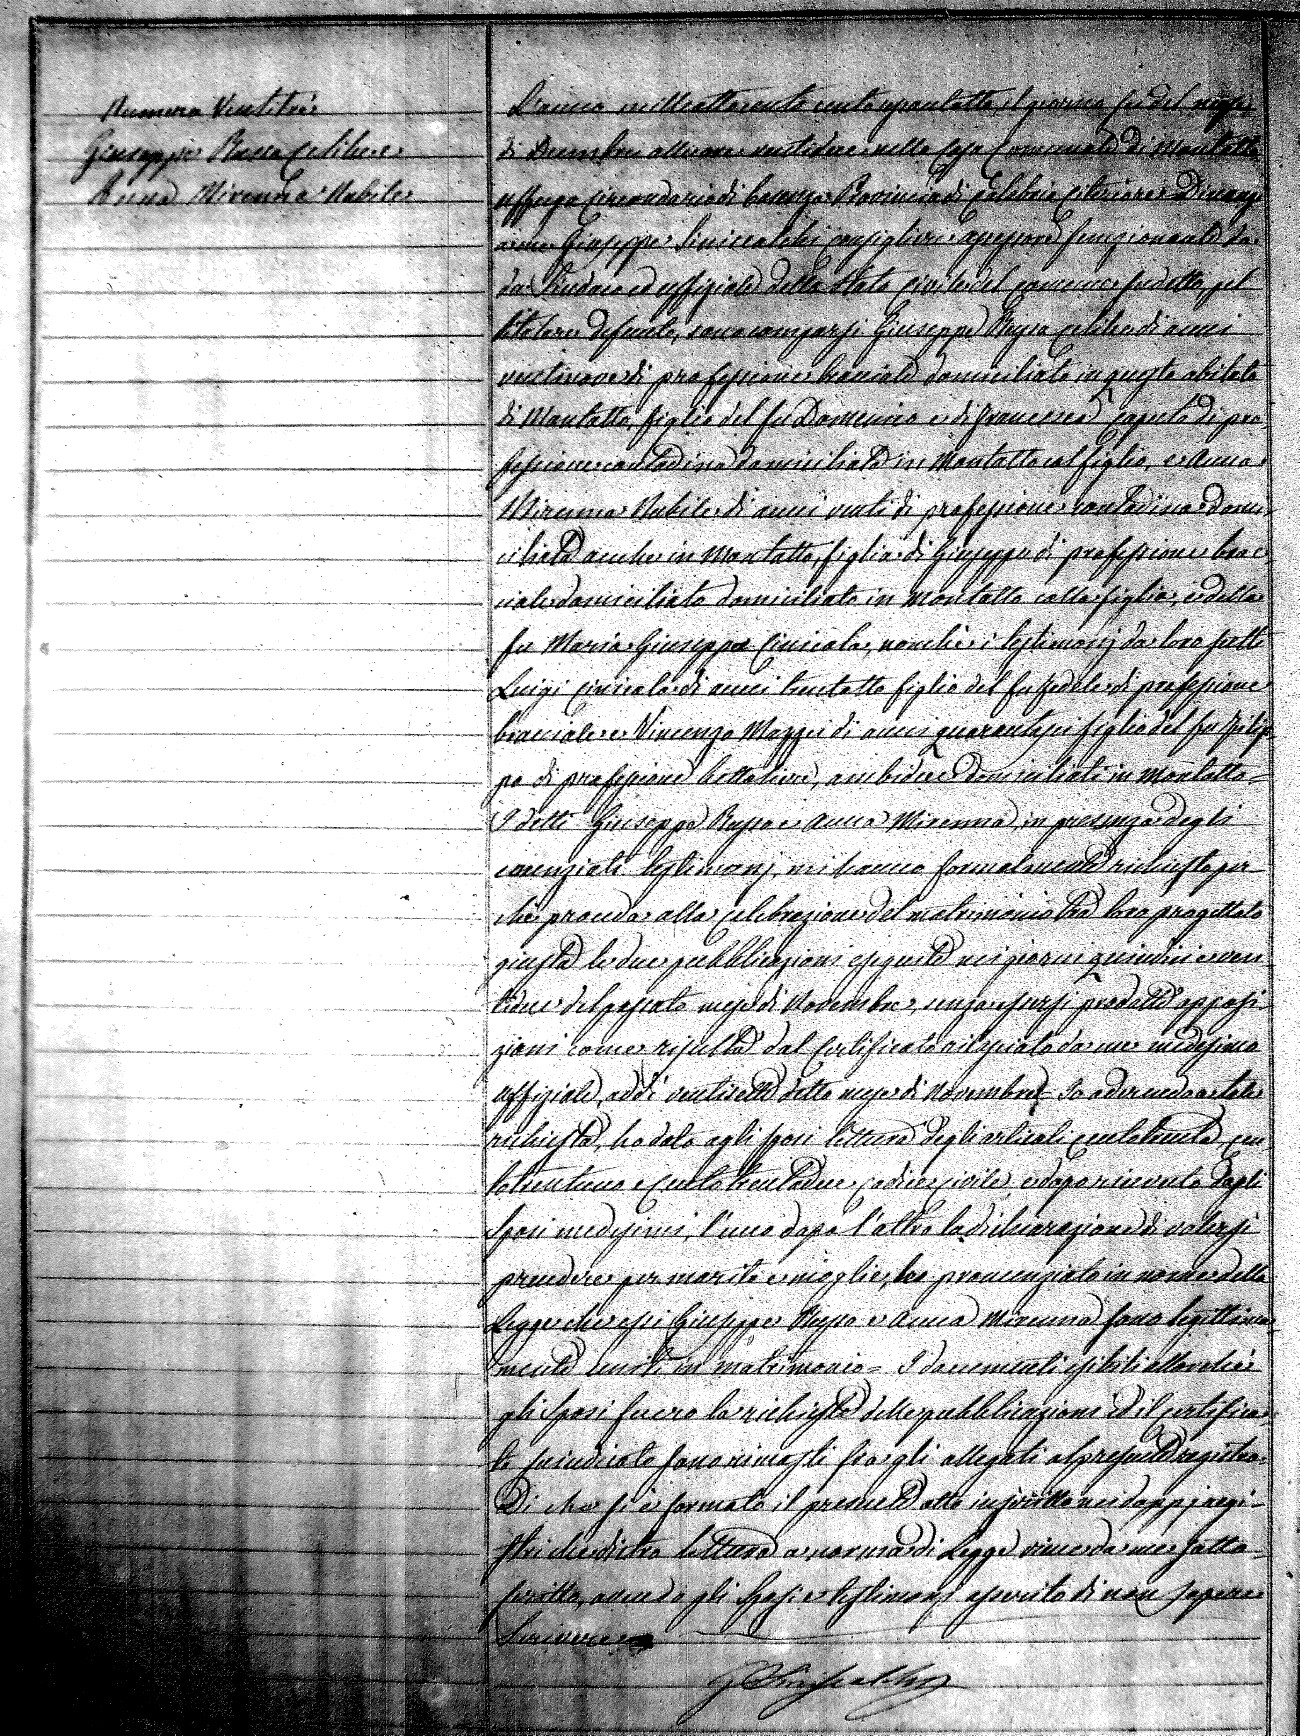 Numero Ventitrè
Giuseppe Russo Celibe e
Anna Mirenna Nubile
L'anno milleottocento sessantotto, il giorno sei del mese
di Decembre alle ore ventidue nella Casa Comunale di Montalto
Uffugo Circondario di Cosenza Provincia di Calabria Citeriore Dinanzi
a me Giuseppe Siniscalchi consigliere assessore funzionante da
da Sindaco ed uffiziale dello Stato Civile del comune sudetto, pel
titolare defunto, sono comparsi Giuseppe Russo celibe di anni
ventinove di professione bracciale domiciliato in questo abitato
di Montalto, figlio del fu Domenico e di Francesca Caputo di pro
fessione contadina domiciliata in Montalto col figlio, e Anna
Mirenna Nubile di anni venti di professione contadina domi
ciliata anche in Montalto, figlia di Giuseppe di professione brac
ciale domiciliato domiciliato in Montalto colla figlia, e della
fu Maria Giuseppa Ciuicala, nonchè i testimonj da loro scelti
Luigi Ciuicala di anni trentotto figlio del fu Fedele di professione
bracciale e Vincenzo Mazzei di anni quarantasei figlio del fu Filip
po di professione bottaliere, ambidue domiciliati in Montalto=
I detti Giuseppe Russo e Anna Mirenna, in presenza degli
enunziati testimonj, mi hanno formalmente richiesto per
chè proceda alla celebrazione del matrimonio tra loro progettato
giusta le due pubblicazioni eseguite nei giorni quindici e ven
tidue del passato mese di Novembre, senza esservi prodotte opposi
zioni come risulta dal Certificato rilasciato da me medesimo
uffiziale, addì ventisette detto mese di Novembre= Io aderendo a tale
richiesta, ho dato agli sposi lettura degli articoli centotrenta, cen
totrentuno e centotrentadue codice civile, e dopo ricevuto dagli
sposi medesimi, l'uno dopo l'altro la dichiarazione di volersi
prendere per marito e moglie, ho pronunziato in nome della
Legge che essi Giuseppe Russo e Anna Mirenna sono legittima
mente uniti in matrimonio= I documenti esibiti allorchè
gli sposi fecero la richiesta delle pubblicazioni ed il certifica
to suindicato sono rimasti fra gli allegati al presente registro=
Di che si è formato il presente atto inscritto nei doppj regi=
stri che dietro lettura a norma di Legge viene da me sotto
scritto, avendo gli Sposi e testimonj asserito di non sapere
Scrivere
G Siniscalchi